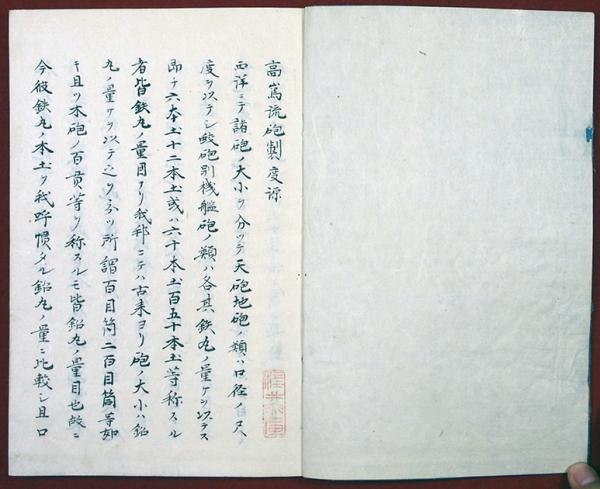 高嶌流砲製度源
西洋ニテ諸砲ノ大小ヲ分ツテ天砲地砲ノ類ハ口径ノ尺
度ヲ以テシ 砲別機艦砲ノ類ハ各其鉄丸ノ量ヲ以テス
即チ六本土十二本土或ハ六十本土百五十本土等称スル
者皆鉄丸ノ量目ナリ我邦ニテハ古来ヨリ砲ノ大小ハ鉛
丸ノ量ヲ以テ之ヲ分ツ所謂百目筒二百目筒等如
キ且ツ木砲ノ百貫等ヲ称スルモ皆鉛丸ノ量目也故ニ
今彼鉄丸ノ本土ヲ我呼慣タル鉛丸ノ量ニ比較シ且口